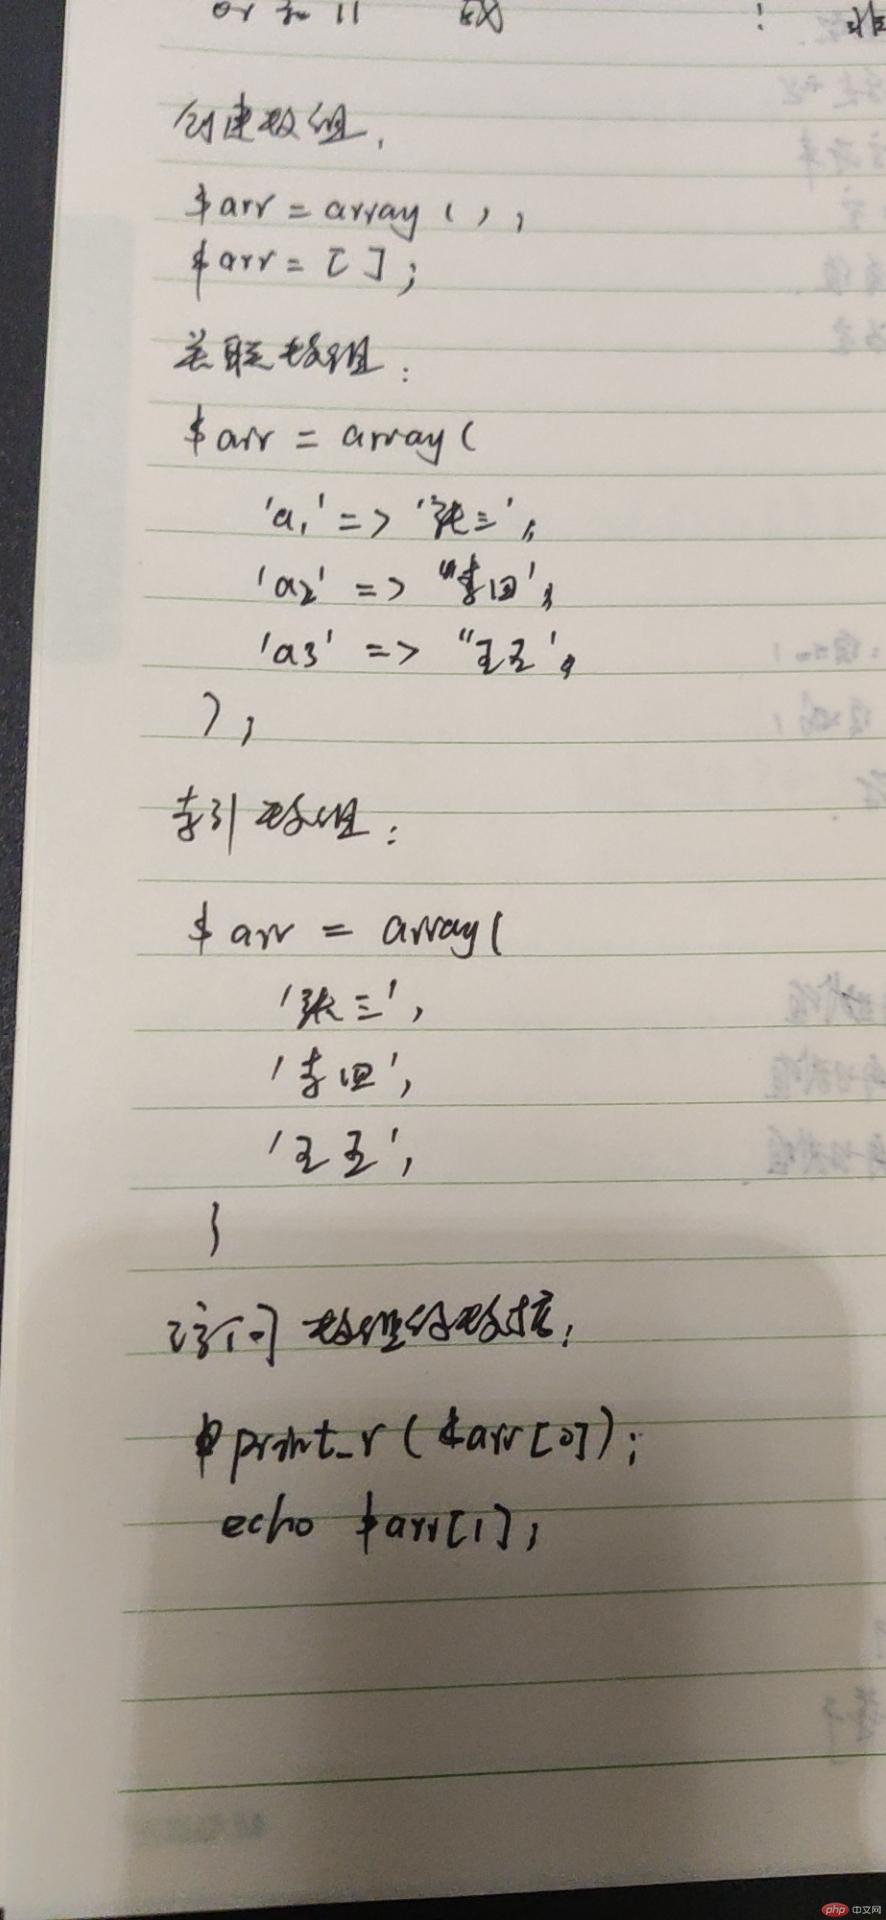 or 和 || 或 ! 非
创建数组,
$arr = array ( ) ,
$arr = [ ] ;
关联数组:
$arr = array (
'a1' => '张三',
'a2' => "李四',
'a3' => "王五',
) ,
索引数组:
$arr = array (
'张三',
'李四',
'王五',
}
访问数组的数据;
print_r ( $arr [0] ) ;
echo $arr [1] ;
php 中文网